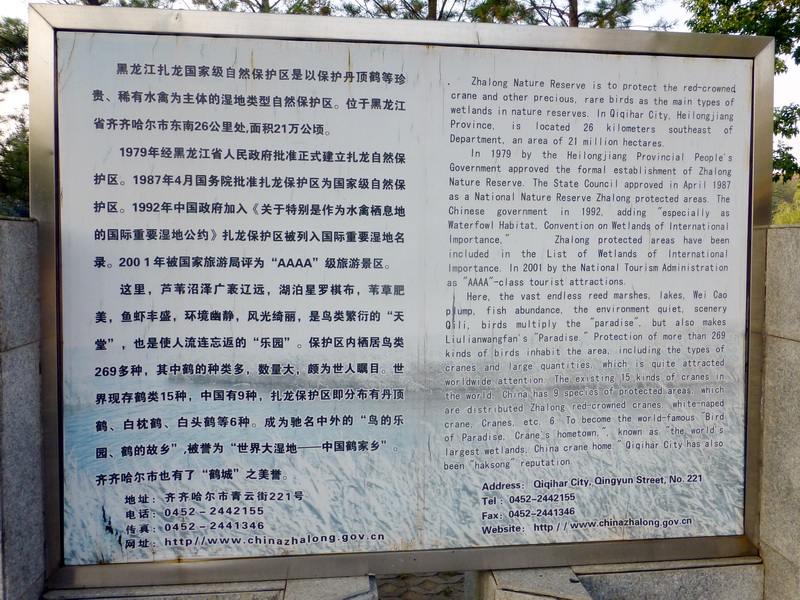 黑龙江扎龙国家级自然保护区是以保护丹顶鹤等珍
贵、稀有水禽为主体的湿地类型自然保护区。位于黑龙江
省齐齐哈尔市东南26公里处,面积21万公顷。
1979年经黑龙江省人民政府批准正式建立扎龙自然保
护区。1987年4月国务院批准扎龙保护区为国家级自然保
护区。1992年中国政府加入《关于特别是作为水禽栖息地
的国际重要湿地公约》扎龙保护区被列入国际重要湿地名
录。2001年被国家旅游局评为“AAAA”级旅游景区。
这里，芦苇沼泽广袤辽远，湖泊星罗棋布，苇草肥
美，鱼虾丰盛，环境幽静，风光绮丽，是鸟类繁衍的“天
堂”，也是使人流连忘返的“乐园”。保护区内栖居鸟类
269多种，其中鹤的种类多，数量大，颇为世人瞩目。世
界现存鹤类15种，中国有9种，扎龙保护区即分布有丹顶
鹤、白枕鹤、白头鹤等6种。成为驰名中外的“鸟的乐
园、鹤的故乡”,被誉为“世界大湿地——中国鹤家乡”。
齐齐哈尔市也有了“鹤城”之美誉。
地址：齐齐哈尔市青云街221号
电话：0452-2442155
传真：0452-2441346
网址：http//www.chinazhalong.gov.cn
Zhalong Nature Reserve is to protect the red-crowned
crane and other precious, rare birds as the main types of
wetlands in nature reserves. In Qiqihar City, Heilongjiang
Province, is located 26 kilometers southeast of
Department, an area of 21 million hectares.
In 1979 by the Heilongjiang Provincial People's
Government approved the formal establishment of Zhalong
Nature Reserve. The State Council approved in April 1987
as a National Nature Reserve Zhalong protected areas. The
Chinese government in 1992, adding "especially as
Waterfowl Habitat, Convention on Wetlands of International
Importance," Zhalong protected areas have been
included in the List of Wetlands of International
Importance. In 2001 by the National Tourism Administration
as "AAAA"-class tourist attractions.
Here, the vast endless reed marshes, lakes, Wei Cao
plump, fish abundance, the environment quiet, scenery
Qili, birds multiply the "paradise", but also makes
Liulianwangfan's "Paradise." Protection of more than 269
kinds of birds inhabit the area, including the types of
cranes and large quantities, which is quite attracted
worldwide attention. The existing 15 kinds of cranes in
the world, China has 9 species of protected areas, which
are distributed Zhalong red-crowned cranes, white-naped
crane, Cranes, etc. 6. To become the world-famous "Bird
of Paradise, Crane's hometown," known as "the world's
largest wetlands, China crane home." Qiqihar City has also
been "haksong" reputation.
Address: Qiqihar City, Qingyun Street, No. 221
Tel : 0452-2442155
Fax: 0452-2441346
Website: http//www.chinazhalong.gov.cn